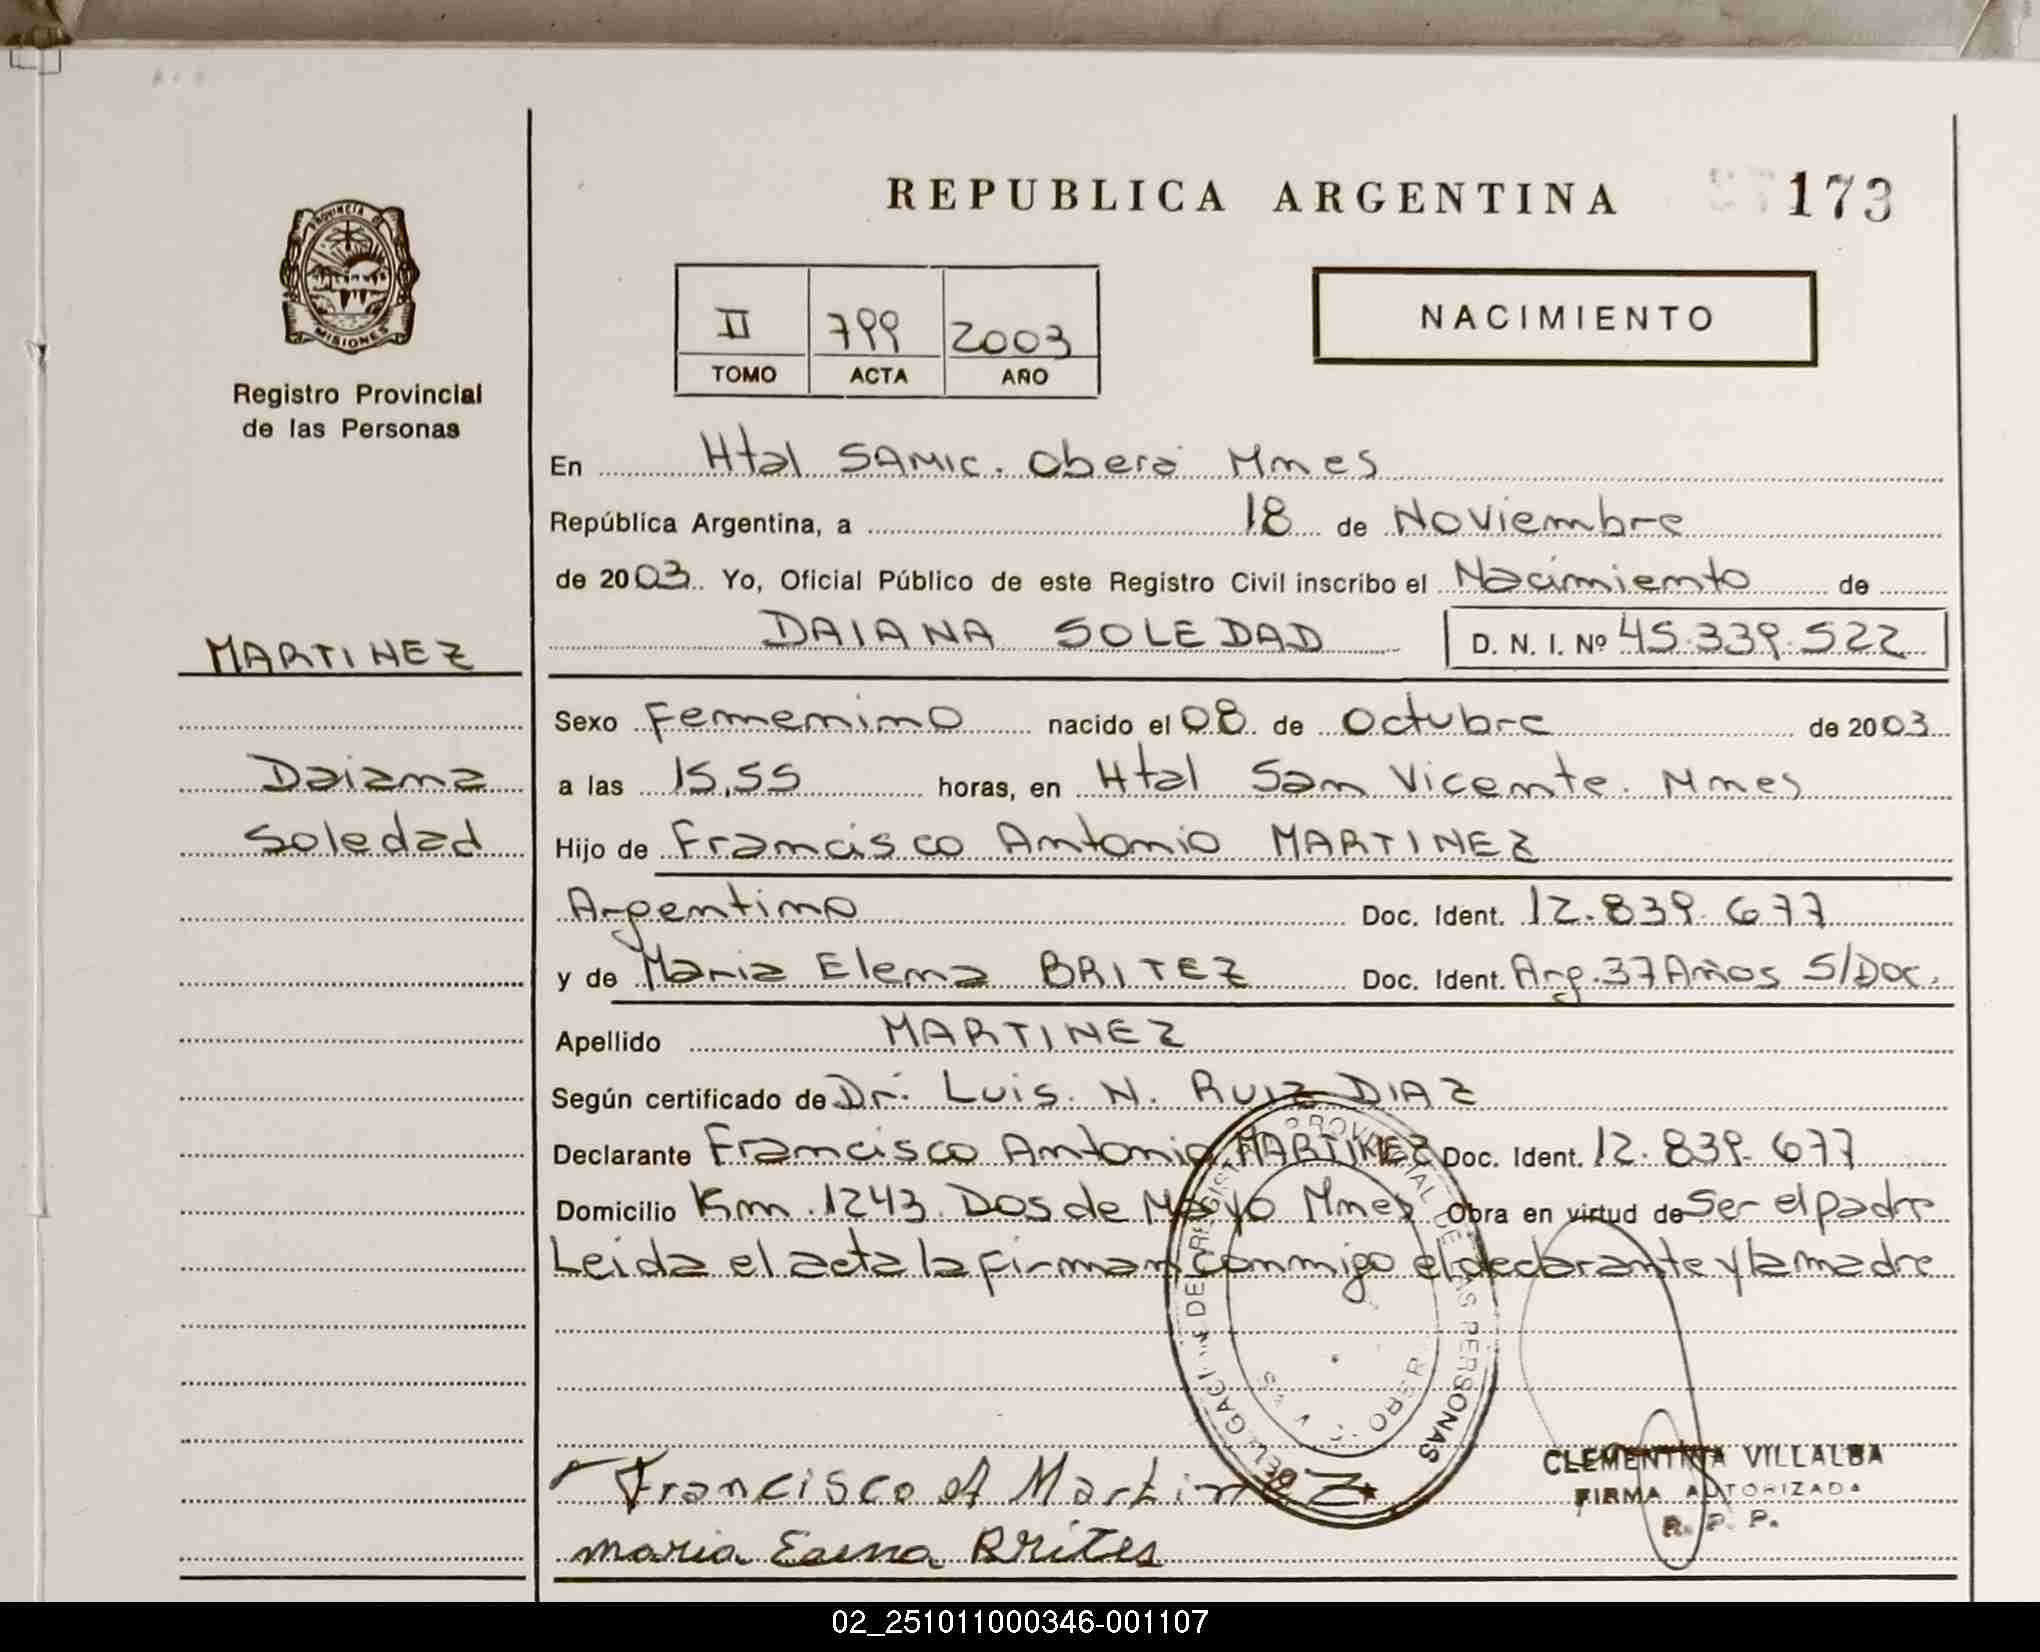 REPUBLICA ARGENTINA 173
PROVINCIA DE MISIONES
Registro Provincial
de las Personas
II 799 2003
TOMO ACTA AÑO
NACIMIENTO
En Htal SAMIC. Oberá Mnes
República Argentina, a 18 de Noviembre
de 2003 Yo, Oficial Público de este Registro Civil inscribo el Nacimiento de
DAIANA SOLEDAD D. N. I. Nº 45.339.522
MARTINEZ
Daiana
Soledad
Sexo Femenino nacido el 08 de Octubre de 2003
a las 15,55 horas, en Htal San Vicente. Mnes
Hijo de Francisco Antonio MARTINEZ
Argentino Doc. Ident. 12.839.677
y de Maria Elena BRITEZ Doc. Ident. Arg. 37 Años S/Doc.
Apellido MARTINEZ
Según certificado de Dr. Luis. N. RUIZ DIAZ
Declarante Francisco Antonio MARTINEZ Doc. Ident. 12.839.677
Domicilio Km. 1243. Dos de Mayo Mnes Obra en virtud de Ser el padre
Leida el acta la firman conmigo el declarante y la madre
REGISTRO PROVINCIAL DE LAS PERSONAS
Francisco A Martinez
maria Eena Brites
CLEMENTINA VILLALBA
FIRMA AUTORIZADA
R. P. P.
02_251011000346-001107